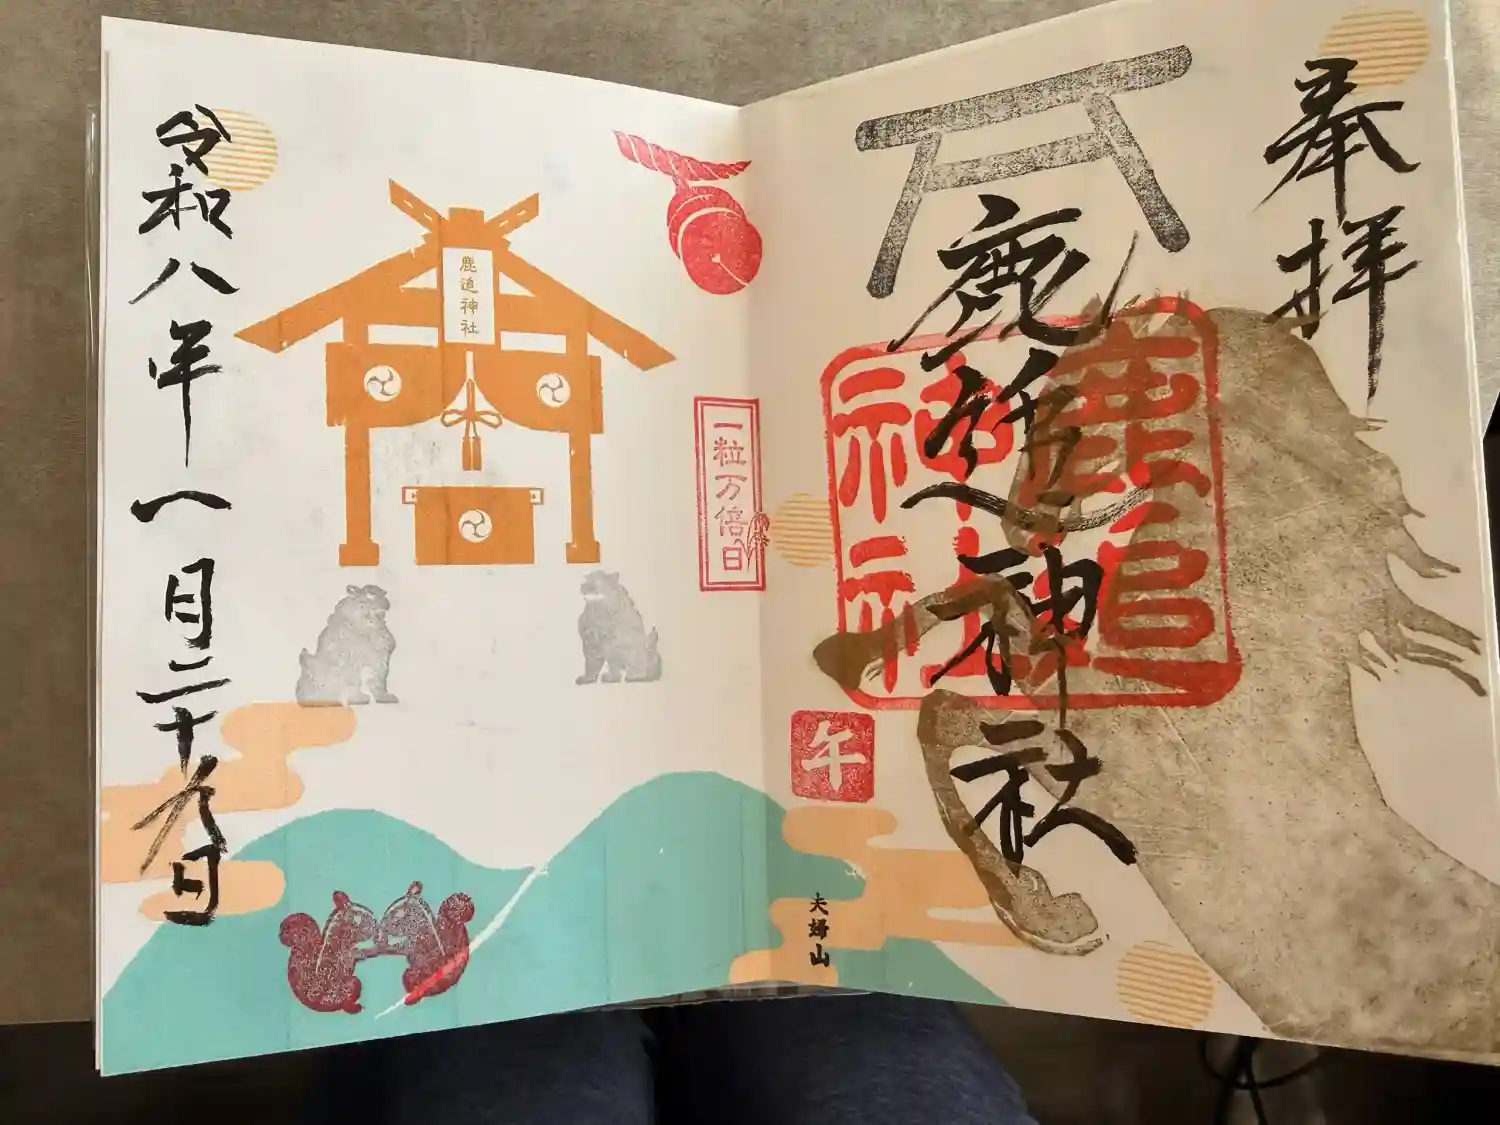 奉拝
鹿追神社
鹿追
神社
午
夫婦山
一粒万倍日
鹿追神社
令和八年一月二十九日